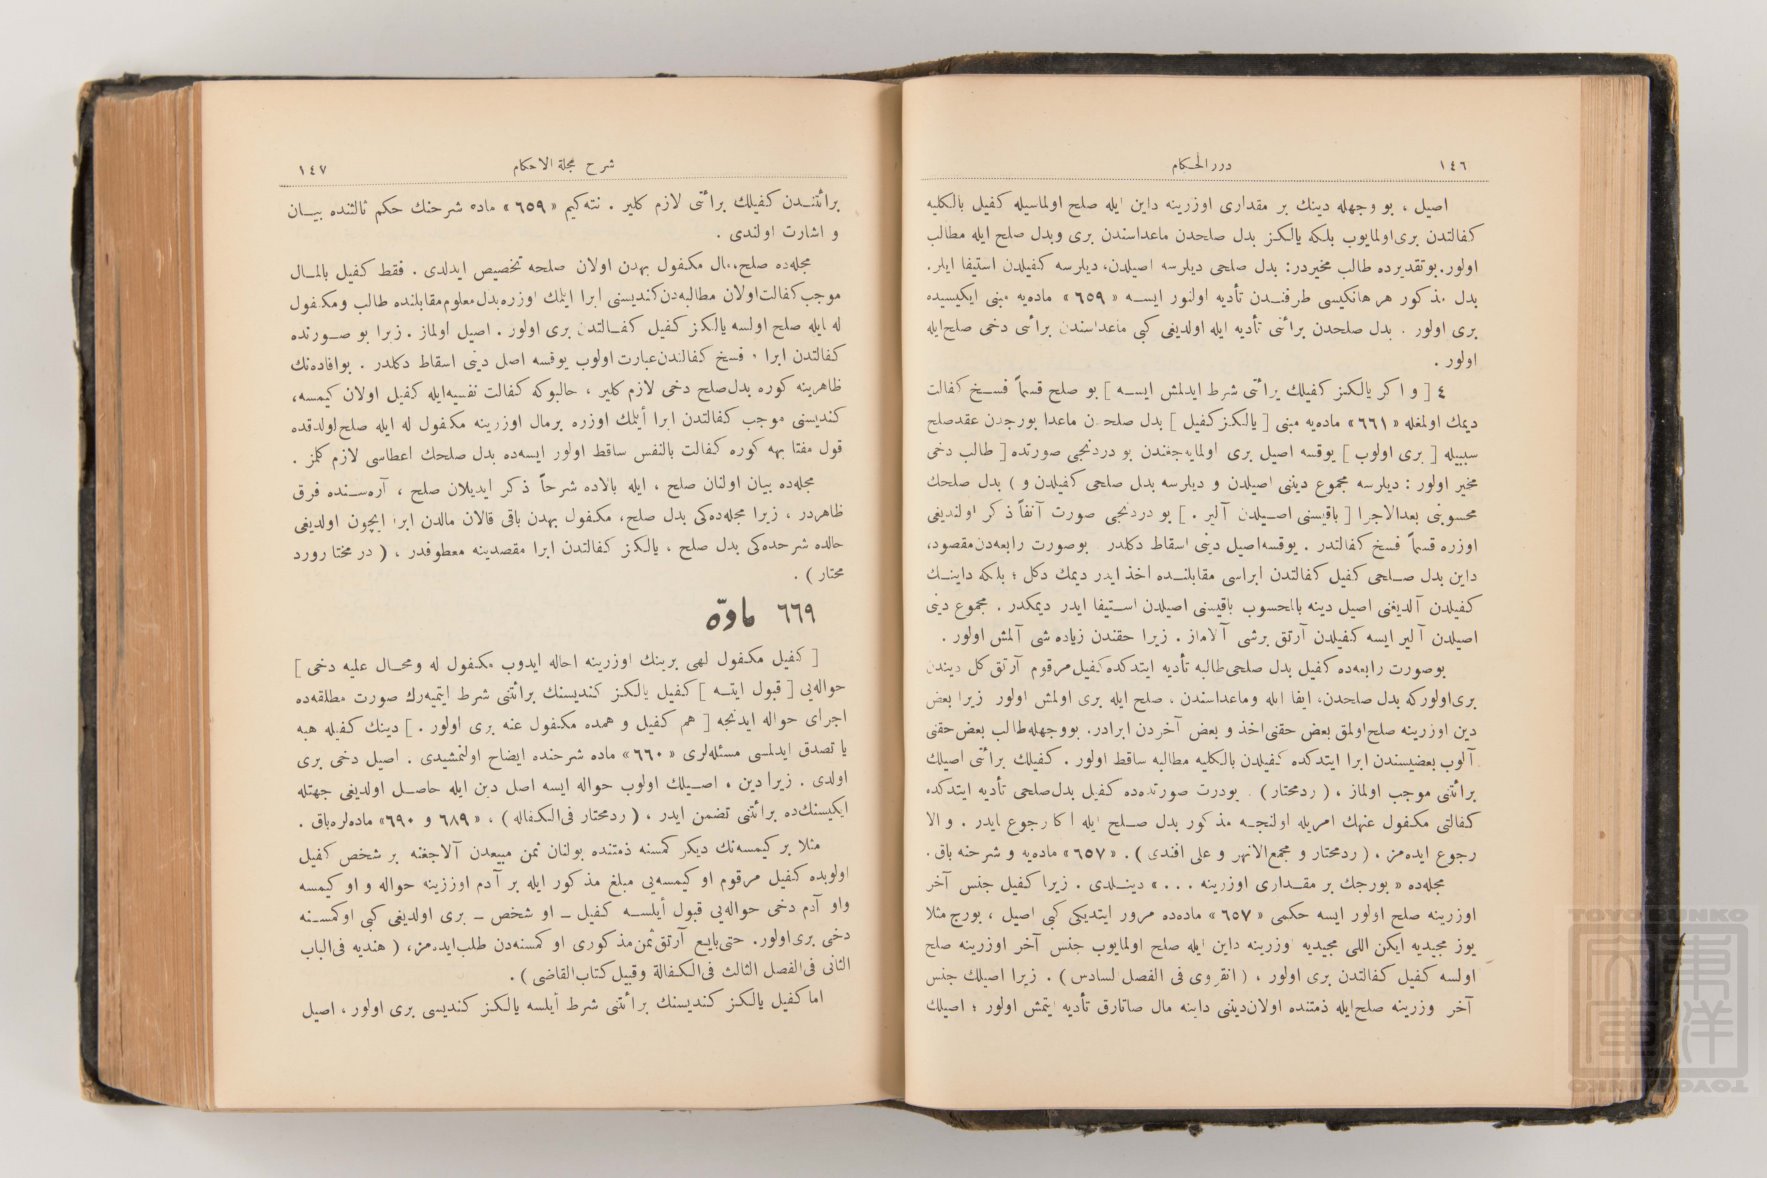 ١٤٦
دررالحكام
اصيل ، بو وجهله دينك بر مقدارى اوزرينه داين ايله صلح اولماسيله كفيل بالكليه
كفالتدن برى اولمايوب بلكه يالكز بدل صلحدن ماعداسندن برى وبدل صلح ايله مطالب
اولور. بو تقديرده طالب مخيردر: بدل صلحى ديلرسه اصيلدن، ديلرسه كفيلدن استيفا ايلر.
بدل مذكور هر هانكيسى طرفندن تأديه اولنور ايسه « ٦٥٩ » ماده‌يه مبنى ايكيسيده
برى اولور . بدل صلحدن برائتى تأديه ايله اولديغى كبى ماعداسندن برائتى دخى صلح ايله
اولور .
٤ [ و اكر يالكز كفيلك برائتى شرط ايدلمش ايسه ] بو صلح قسماً فسخ كفالت
ديمك اولمغله « ٦٦١ » ماده‌يه مبنى [ يالكز كفيل ] بدل صلحدن ماعدا بورجدن عقد صلح
سببيله [ برى اولوب ] يوقسه اصيل برى اولمايه‌جغندن بو دردنجى صورتده [ طالب دخى
مخير اولور : ديلرسه مجموع دينى اصيلدن و ديلرسه بدل صلحى كفيلدن و ) بدل صلحك
محسوبنى بعدالاجرا [ باقيسنى اصيلدن آلير . ] بو دردنجى صورت آنفاً ذكر اولنديغى
اوزره قسماً فسخ كفالتدر . يوقسه اصيل دينى اسقاط دكلدر . بوصورت رابعه‌دن مقصود،
داين بدل صلحى كفيل كفالتدن ابراسى مقابلنده اخذ ايدر ديمك دكل ؛ بلكه داينك
كفيلدن آلديغنى اصيل دينه بالمحسوب باقيسنى اصيلدن استيفا ايدر ديمكدر . مجموع دينى
اصيلدن آلير ايسه كفيلدن آرتق برشى آلاماز . زيرا حقندن زياده شى آلمش اولور .
بوصورت رابعه‌ده كفيل بدل صلحى طالبه تأديه ايتدكده كفيل مرقوم آرتق كل ديندن
برى اولور كه بدل صلحدن، ايفا ايله وماعداسندن ، صلح ايله برى اولمش اولور زيرا بعض
دين اوزرينه صلح اولمق بعض حقنى اخذ و بعض آخردن ابرادر. بو وجهله طالب بعض حقنى
آلوب بعضيسندن ابرا ايتدكده كفيلدن بالكليه مطالبه ساقط اولور . كفيلك برائتى اصيلك
برائتنى موجب اولماز ، ( ردمحتار ) . بودرت صورتده‌ده كفيل بدل صلحى تأديه ايتدكده
كفالتى مكفول عنهك امريله اولنجه مذكور بدل صلح ايله اكا رجوع ايدر . و الا
رجوع ايده‌مز . ( ردمحتار و مجمع‌الانهر و على افندى ) . « ٦٥٧ » ماده‌يه و شرحنه باق .
مجله‌ده « بورجك بر مقدارى اوزرينه . . . » دينلدى . زيرا كفيل جنس آخر
اوزرينه صلح اولور ايسه حكمى « ٦٥٧ » ماده‌ده مرور ايتديكى كبى اصيل ، بورج مثلا
يوز مجيديه ايكن اللى مجيديه اوزرينه داين ايله صلح اولمايوب جنس آخر اوزرينه صلح
اولسه كفيل كفالتدن برى اولور ، ( انقروى فى الفصل لسادس ) . زيرا اصيلك جنس
آخر وزرينه صلح ايله ذمتنده اولان دينى داينه مال صاتارق تأديه ايتمش اولور ؛ اصيلك
شرح مجلة الاحكام
١٤٧
برائتندن كفيلك برائتى لازم كلير . نته‌كيم « ٦٥٩ » ماده شرحنك حكم ثالثنده بيان
و اشارت اولندى .
مجله‌ده صلح، مال مكفول بهدن اولان صلحه تخصيص ايدلدى . فقط كفيل بالمال
موجب كفالت اولان مطالبه‌دن كنديسنى ابرا ايتمك اوزره بدل معلوم مقابلنده طالب ومكفول
له ايله صلح اولسه يالكز كفيل كفالتدن برى اولور . اصيل اولماز . زيرا بو صورتده
كفالتدن ابرا ، فسخ كفالتدن عبارت اولوب يوقسه اصل دينى اسقاط دكلدر . بوافاده‌نك
ظاهرينه كوره بدل صلح دخى لازم كلير ، حالبوكه كفالت نفسيه ايله كفيل اولان كيمسه،
كنديسنى موجب كفالتدن ابرا أيتمك اوزره برمال اوزرينه مكفول له ايله صلح اولدقده
قول مفتا بهه كوره كفالت بالنفس ساقط اولور ايسه‌ده بدل صلحك اعطاسى لازم كلمز .
مجله‌ده بيان اولنان صلح ، ايله بالاده شرحاً ذكر ايديلان صلح ، آره‌سنده فرق
ظاهردر ، زيرا مجله‌ده‌كى بدل صلح، مكفول بهدن باقى قالان مالدن ابرا ايچون اولديغى
حالده شرحده‌كى بدل صلح ، يالكز كفالتدن ابرا مقصدينه معطوفدر ، ( در مختا رورد
محتار ) .
٦٦٩ ماده
[ كفيل مكفول لهى برينك اوزرينه احاله ايدوب مكفول له ومحال عليه دخى ]
حواله‌يى [ قبول ايتسه ] كفيل يالكز كنديسنك برائتنى شرط ايتميه‌رك صورت مطلقه‌ده
اجراى حواله ايدنجه [ هم كفيل و همده مكفول عنه برى اولور . ] دينك كفيله هبه
يا تصدق ايدلمسى مسئله‌لرى « ٦٦٠ » ماده شرحنده ايضاح اولنمشيدى . اصيل دخى برى
اولدى . زيرا دين ، اصيلك اولوب حواله ايسه اصل دين ايله حاصل اولديغى جهتله
ايكيسنك‌ده برائتنى تضمن ايدر ، ( ردمحتار فى‌الكفاله ) ، « ٦٨٩ و ٦٩٠ » ماده‌لره باق .
مثلا بر كيمسه‌نك ديكر كمسنه ذمتنده بولنان ثمن مبيعدن آلاجغنه بر شخص كفيل
اولوبده كفيل مرقوم او كيمسه‌يى مبلغ مذكور ايله بر آدم اوززينه حواله و او كيمسه
واو آدم دخى حواله‌يى قبول أيلسه كفيل ــ او شخص ــ برى اولديغى كبى اوكمسنه
دخى برى اولور. حتى بايع آرتق ثمن مذكورى او كمسنه‌دن طلب ايده‌مز، ( هنديه فى‌الباب
الثانى فى‌الفصل الثالث فى‌الكفالة وقبيل كتاب القاضى ) .
اما كفيل يالكز كنديسنك برائتنى شرط أيلسه يالكز كنديسى برى اولور ، اصيل
TOYO BUNKO
東洋文庫
TOYO BUNKO